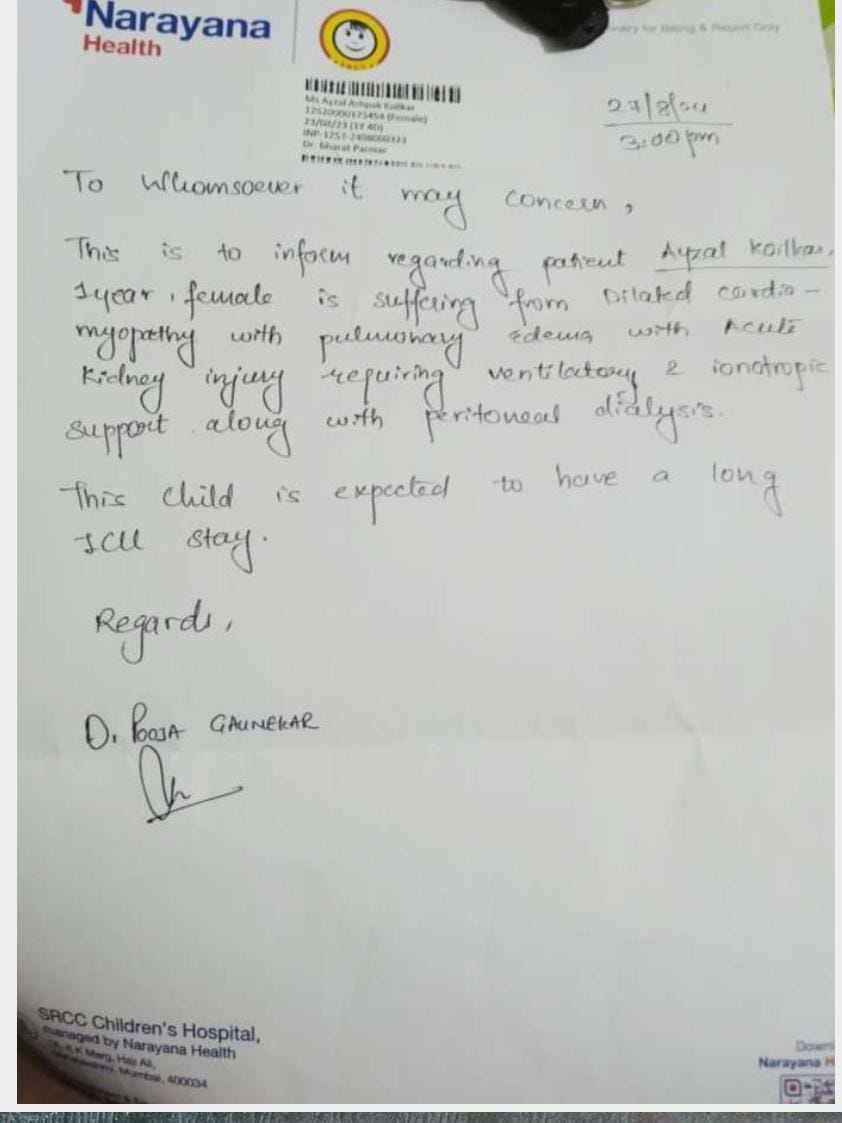 Narayana
Health
27/8/24
3:00 pm
Ms Ayzal Ashpak Koilkar
12520000175454 (Female)
23/08/23 (1Y 4D)
INP-1251-2408000323
Dr. Bharat Parmar
To Whomsoever it may concern,
This is to inform regarding patient Ayzal Koilkar,
1year, female is suffering from Dilated cardio-
myopathy with pulmonary edema with Acute
Kidney injury requiring ventilatory & ionotropic
support along with peritoneal dialysis.
This child is expected to have a long
ICU stay.
Regards,
Dr Pooja GAUNEKAR
SRCC Children's Hospital,
managed by Narayana Health
K K Marg, Haji Ali,
Mumbai, 400034
Narayana H